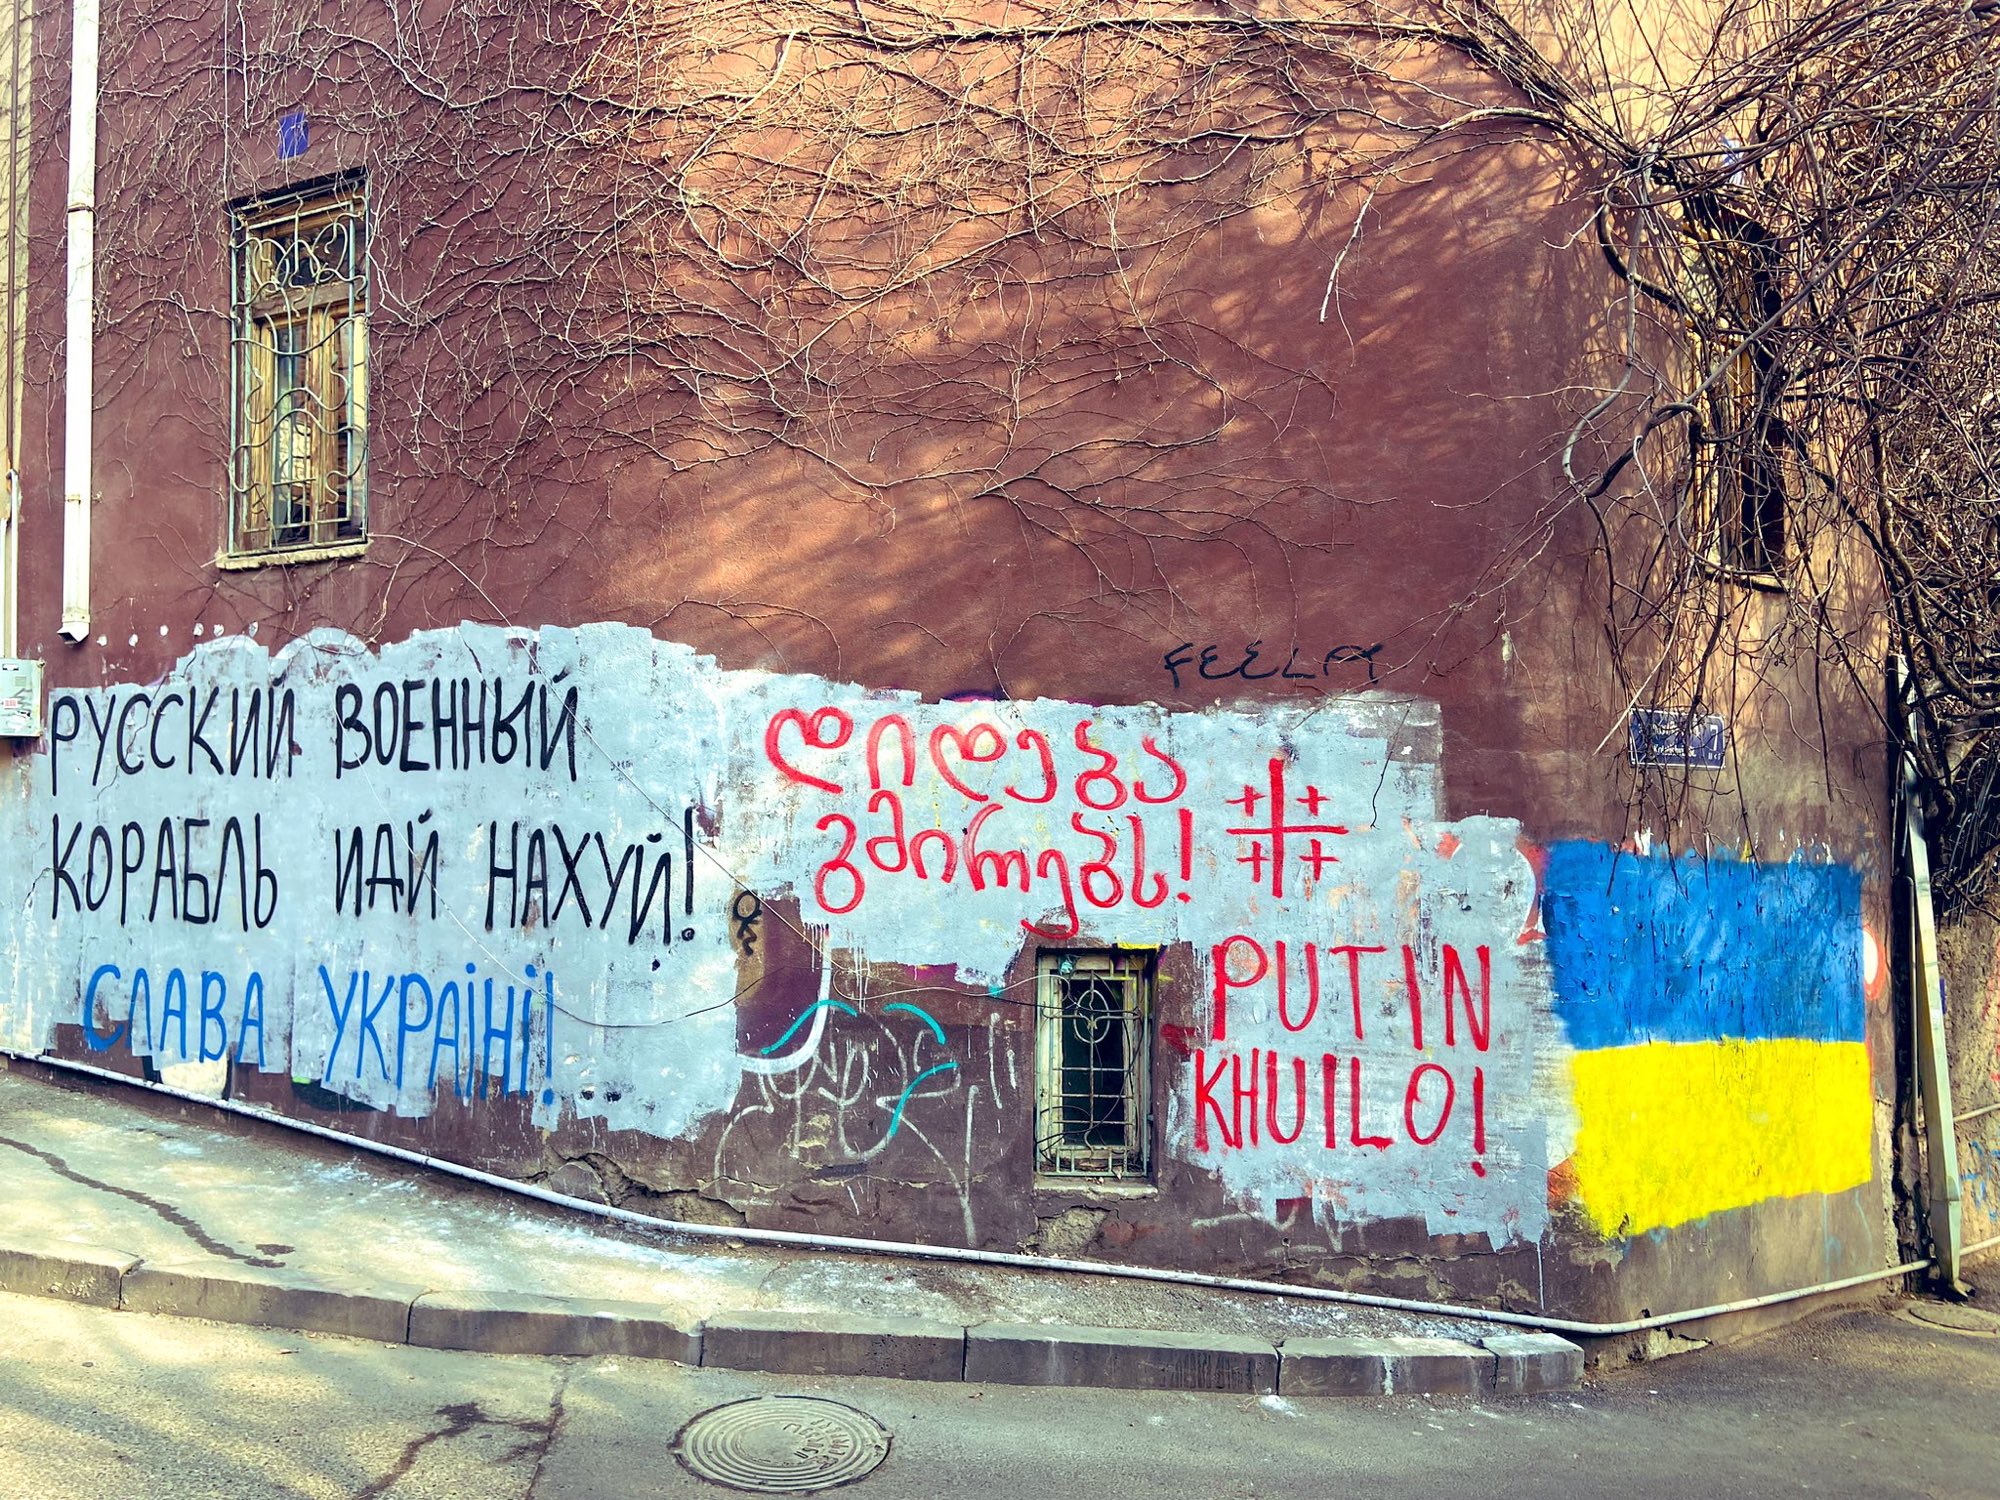 РУССКИЙ ВОЕННЫЙ
КОРАБЛЬ ИДИ НАХУЙ!
СЛАВА УКРАЇНІ!
დიდება
გმირებს!
PUTIN
KHUILO!
FEELA